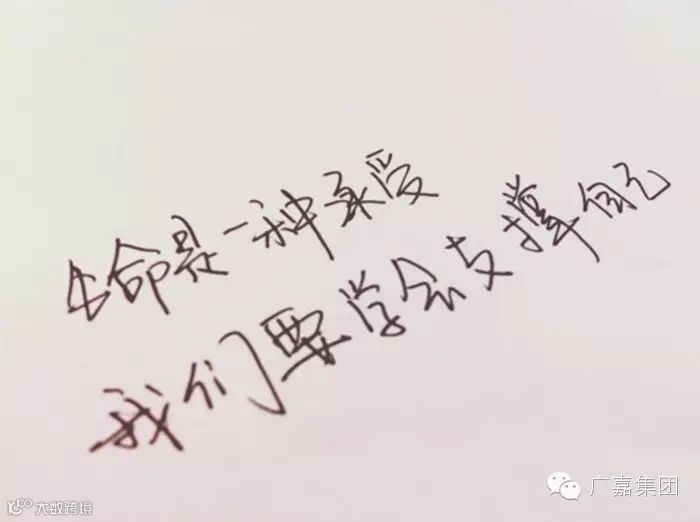 生命是一种承受
我们要学会支撑自己
广嘉集团
大数跨境